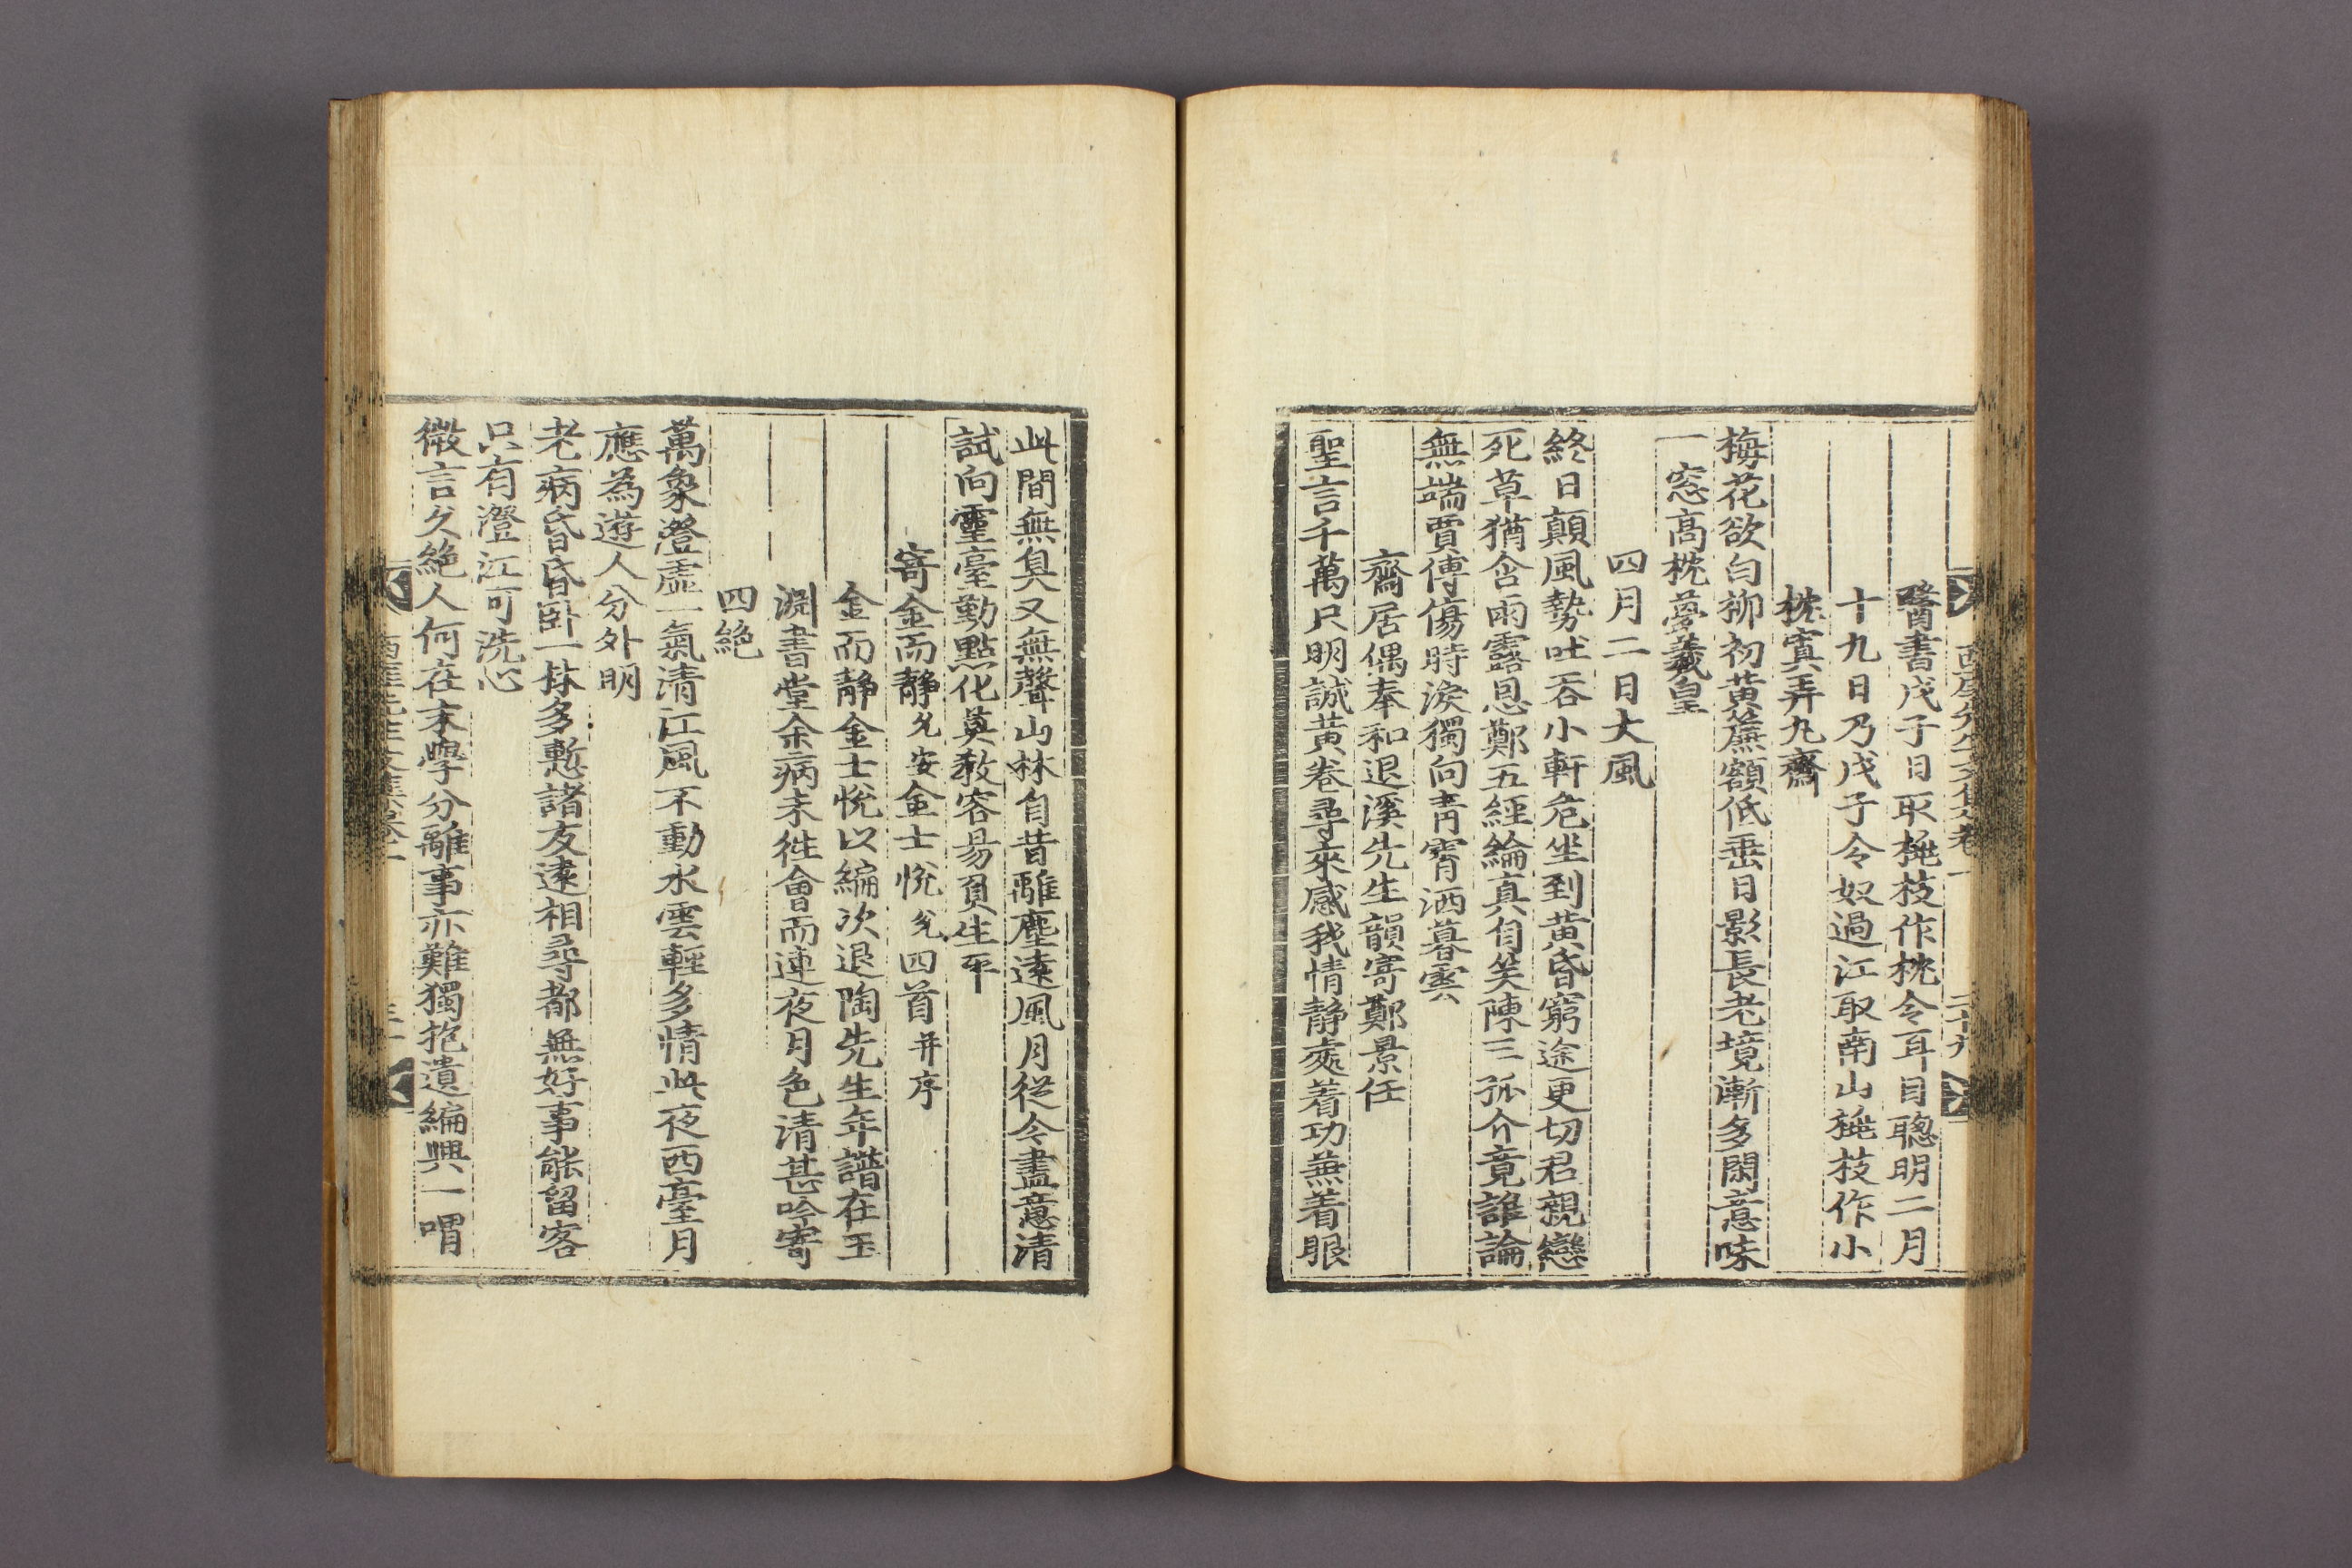 醫書戊子日取桃枝作枕令耳目聰明二月
十九日乃戊子令奴過江取南山桃枝作小
枕寘弄丸齋
梅花欲白柳初黃簾額低垂日影長老境漸多閑意味
一窓高枕夢羲皇
四月二日大風
終日顛風勢吐吞小軒危坐到黃昏窮途更切君親戀
死草猶含雨露恩鄭五經綸真自笑陳三孤介竟誰論
無端賈傅傷時淚獨向靑霄洒暮雲
齋居偶奉和退溪先生韻寄鄭景任
聖言千萬只明誠黃卷尋來感我情静處着功無着眼
西厓先生文集卷一 二十九
此間無臭又無聲山林自昔離塵遠風月從今盡意清
試向靈臺勤點化莫敎容易負生平
寄金而静兌安金士悅兊四首并序
金而静金士悅以編次退陶先生年譜在玉
淵書堂余病未徃會而連夜月色清甚吟寄
四絶
萬象澄虛一氣清江風不動水雲輕多情此夜西臺月
應為遊人分外明
老病昏昏卧一牀多慙諸友遠相尋都無好事能留客
只有澄江可洗心
微言久絶人何在末學分離事亦難獨抱遺編興一喟
西厓先生文集卷一